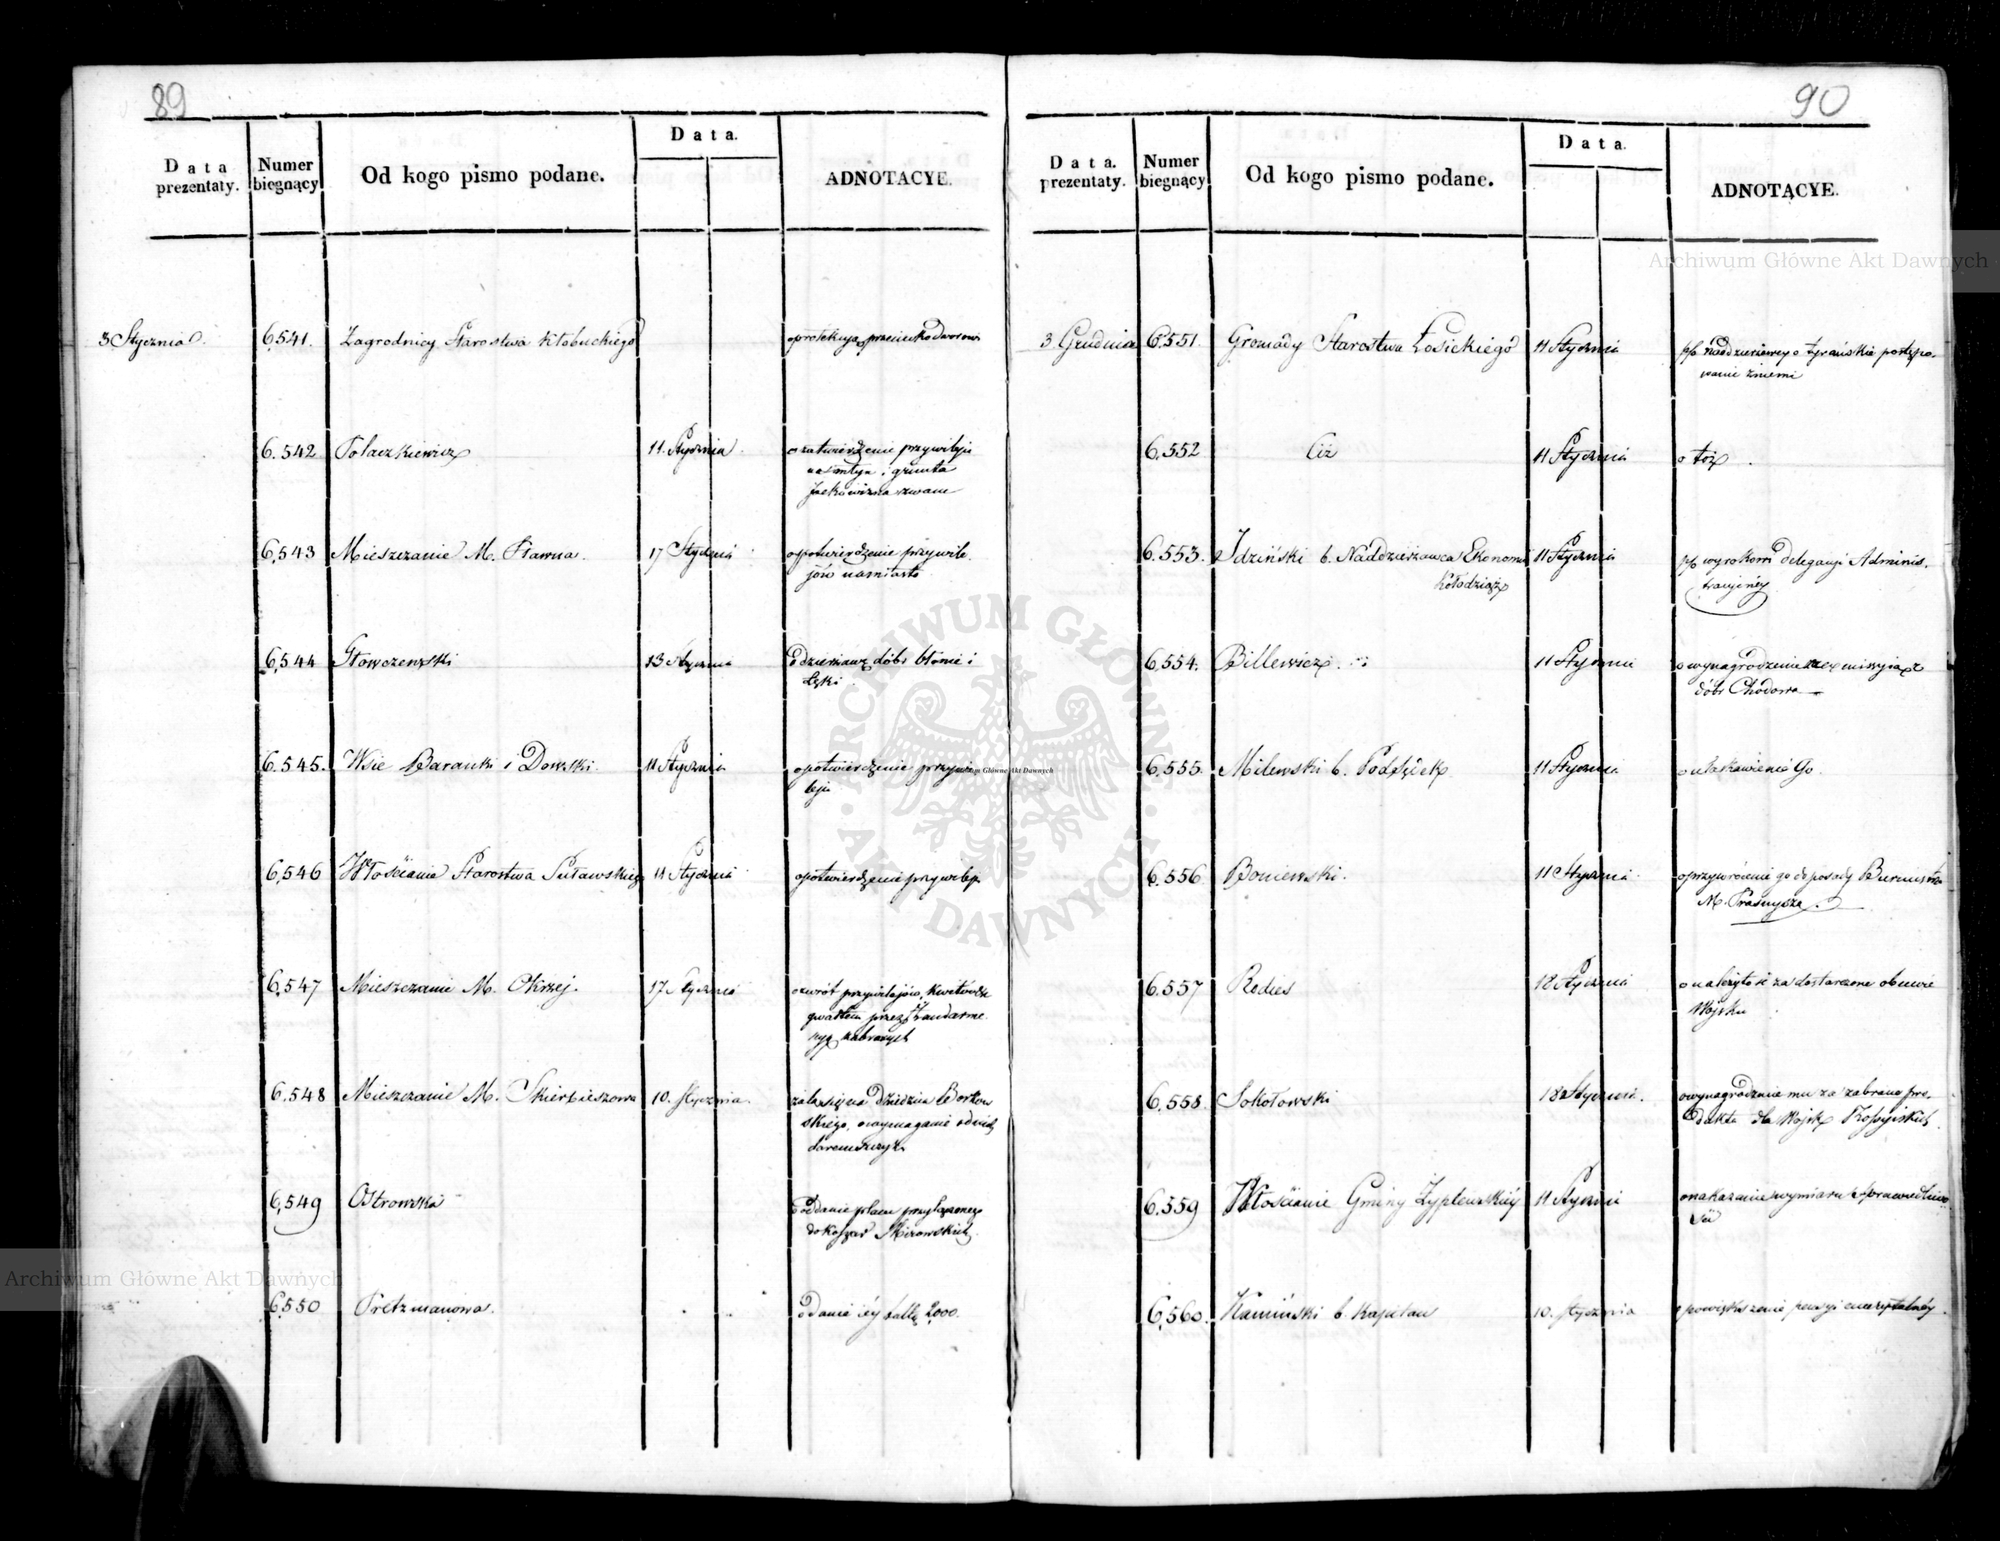 89
Data prezentaty. Numer biegnący Od kogo pismo podane. Data. ADNOTACYE.
3 Stycznia. 6,541. Zagrodnicy Starostwa Kłobuckiego
6.542 Polaczkiewicz 11. Stycznia. o zatwierdzenie przywileju
na młyn i grunta
zwane
6,543 Mieszczanie M. Pławna. 17 Stycznia o potwierdzenie przywile
jów na miasto
6,544 Stowczewski 13 Stycznia o dzierżawę dóbr błonie i
Łęki
6.545. Wsie Baranki i Dowski. 11 Stycznia o potwierdzenie przywi
leju
6,546 Włościanie Starostwa Puławskiego 11 Stycznia o potwierdzenie przywileju
6,547 Mieszczanie M. Okrzej. 17 Stycznia o zwrót przywilejów, kwitów
gwałtem przez Żandarme
zabranych
6,548 Mieszczanie M. Skierbieszowa 10. Stycznia. żalą się na Dziedzica
skiego, o wymaganie od nich
daremszczyzn
6,549 Ostrowska o oddanie placu przyłączonego
do Koszar Mirowskich.
6,550 Pretzmanowa. o danie iéy 2,000.
90
Data. prezentaty. Numer biegnący Od kogo pismo podane. Data. ADNOTACYE.
3 Grudnia 6.551. Gromady Starostwa Łosickiego 11 Stycznia o tyrańskie postępo-
wanie z niemi
6.552 Ciż 11 Stycznia o toż.
6.553. Idziński b. Naddzierżawca Ekonomii 11 Stycznia pko wyrokowi delegacyi Adminis-
Kołodziąż tracyjnéy
6.554. Billewicz. 11 Stycznia o wynagrodzenie z
dóbr Chodowa
6.555. Milewski b. Podsędek 11 Stycznia o ułaskawienie Go.
6.556 Boniewski. 11 Stycznia o przywrócenie go do posady Burmistrza
M. Prasnysza.
6.557 Redies 18 Stycznia o należytość za dostarczone obuwie
Wojsku
6,558. Sokołowski 18 Stycznia. o wynagrodzenie mu za zabrane pro-
dukta dla Wojsk Rossyiskich.
6.559 Włościanie Gminy Zyplewskiéy 11 Stycznia o nakazanie wymiaru sprawiedliwo
ści
6,560. Kamiński b. Kapitan 10. Stycznia o powiększenie pensyi emerytalnéy.
Archiwum Główne Akt Dawnych
ARCHIWUM GŁÓWNE · AKT DAWNYCH ·
Archiwum Główne Akt Dawnych
Archiwum Główne Akt Dawnych